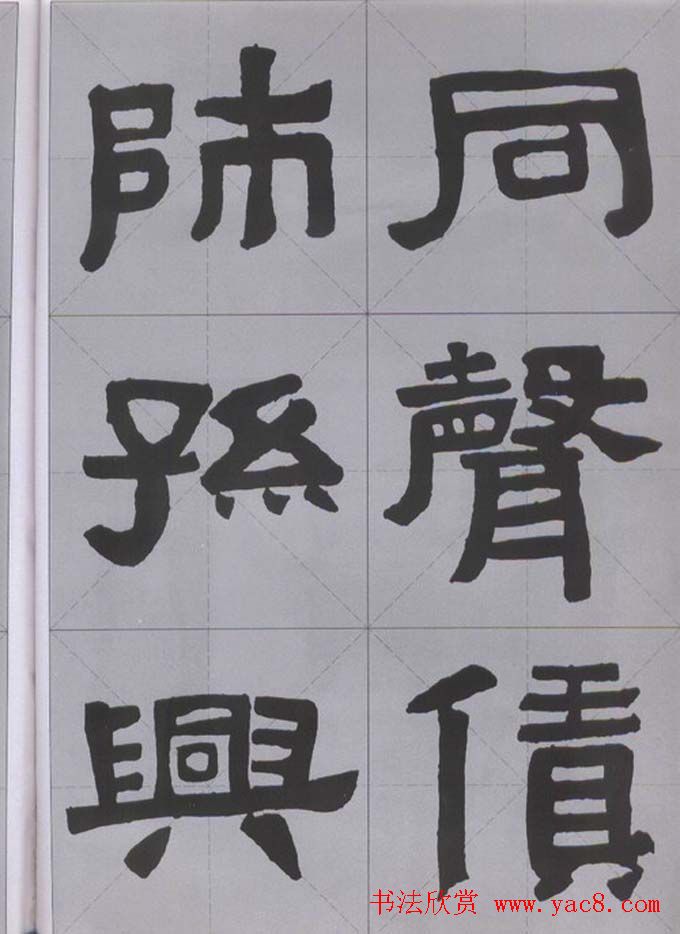 同聲賃
師孫興
书法欣赏 www.yac8.com